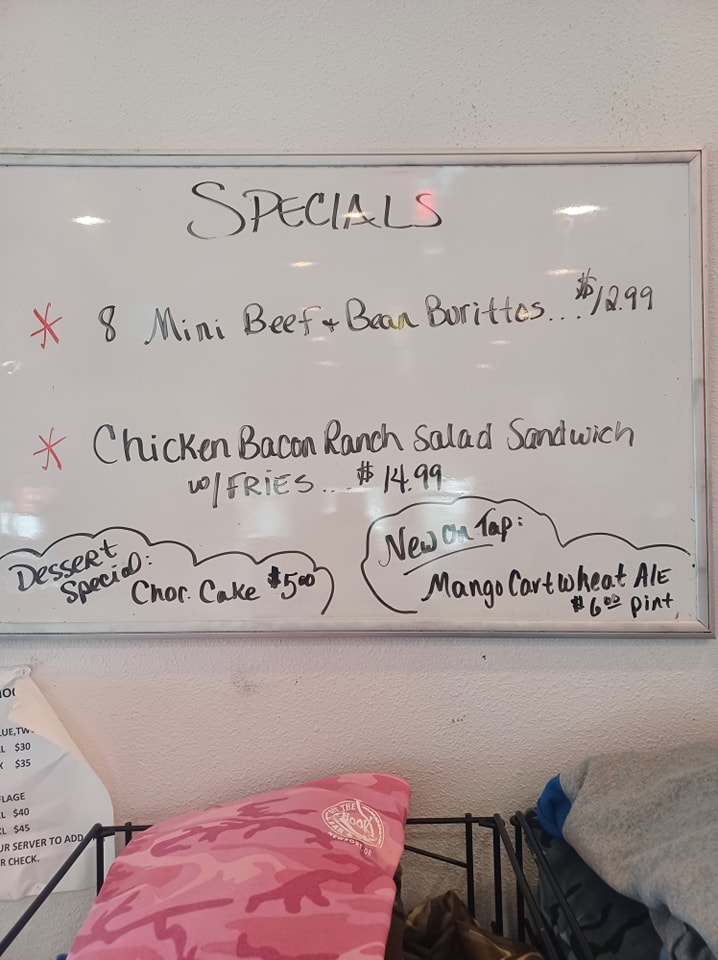 SPECIALS
* 8 Mini Beef + Bean Burittos....$12.99
* Chicken Bacon Ranch Salad Sandwich
w/FRIES.... $14.99
Dessert
Special:
Choc. Cake $5.00
New On Tap:
Mango Cart wheat ALE
$6.00 pint
$30
$35
FLAGE
L $40
XL $45
UR SERVER TO ADD
R CHECK.
THE
HOOK
NEWPORT, OR